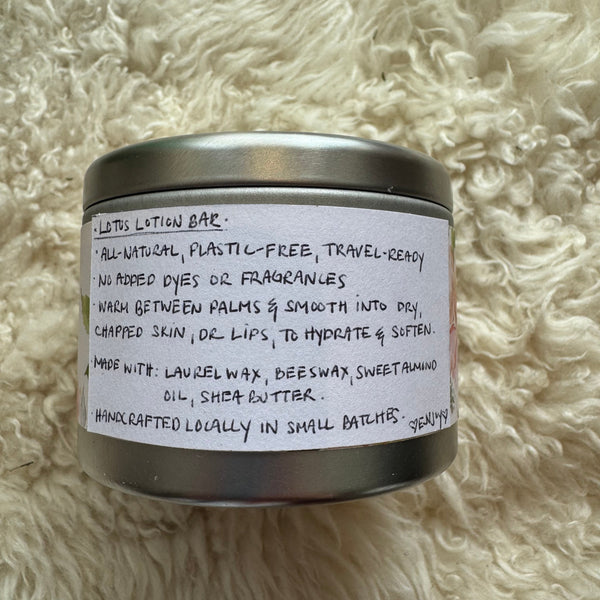 · LOTUS LOTION BAR ·
· ALL-NATURAL, PLASTIC-FREE, TRAVEL-READY
· NO ADDED DYES OR FRAGRANCES
· WARM BETWEEN PALMS & SMOOTH INTO DRY,
CHAPPED SKIN, OR LIPS, TO HYDRATE & SOFTEN.
· MADE WITH: LAUREL WAX, BEESWAX, SWEET ALMOND
OIL, SHEA BUTTER.
· HANDCRAFTED LOCALLY IN SMALL BATCHES.
♡ENJOY♡